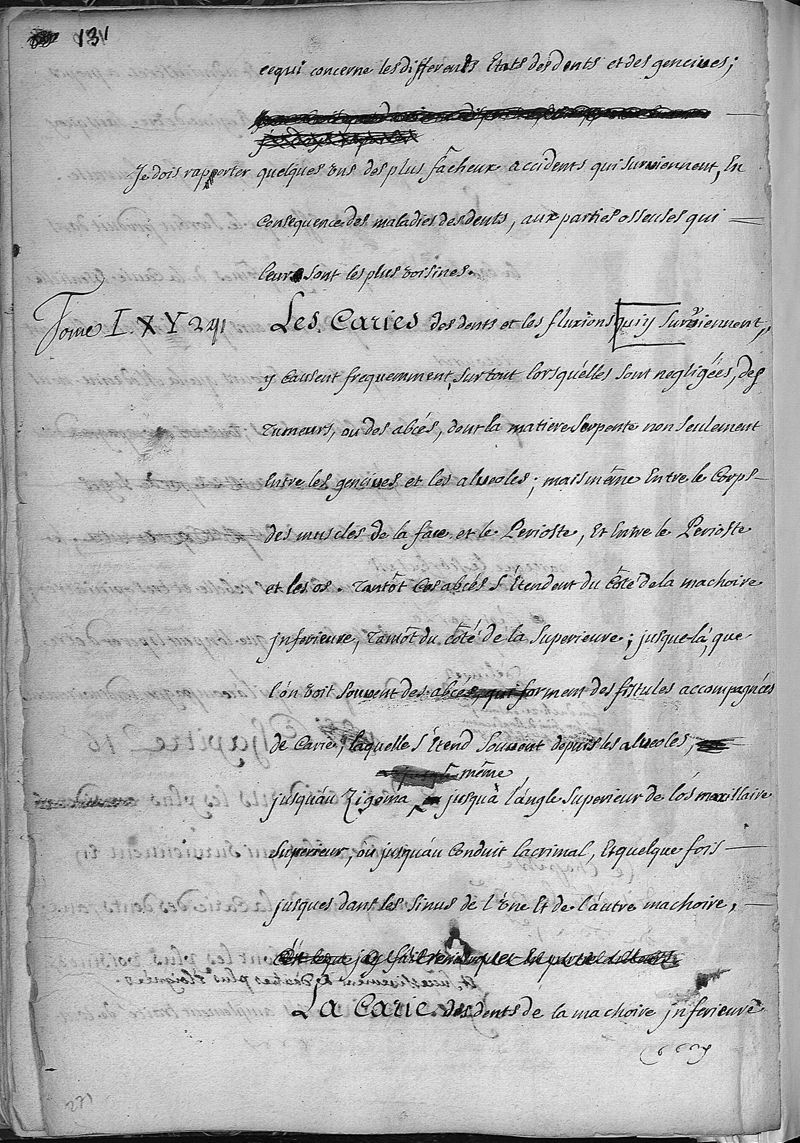 131
cequi concerne les differents Etats des dents et des gencives;
Je dois rapporter quelques uns des plus fâcheux accidents qui surviennent, En
Consequence des maladies des dents, aux parties osseuses qui
leur sont les plus voisines.
Tome I. X Y 241
Les Caries des dents et les fluxions qui y surviennent,
y Causent frequemment, surtout lorsqu'elles sont negligées, des
Tumeurs, ou des abcés, dont la matiere serpente non seulement
Entre les gencives et les alveoles; mais même Entre le Corps
des muscles de la face et le Perioste, Et Entre le Perioste
et les os. Tantôt Ces abcés s'Etendent du Côté de la machoire
jnferieure, Tantôt du Côté de la Superieure; jusque-là, que
l'on voit souvent des abcés, qui forment des fistules accompagnées
de Carie, laquelle s'Etend souvent depuis les alveoles,
même
jusqu'au Zigoma, jusqu'à l'angle Superieur de l'os maxillaire
Superieur, ou jusqu'au Conduit lacrimal, Et quelque fois
jusques dans les sinus de l'Une Et de l'autre machoire,
Et successivement à d'autres plus Eloignées.
La Carie des dents de la machoire jnferieure
271